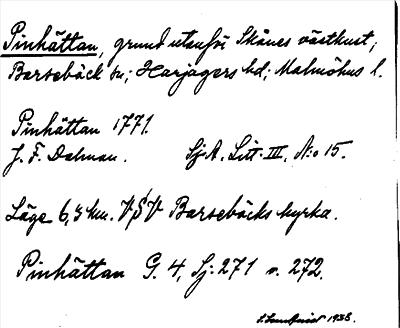 Pinhättan, grund utanför Skånes västkust,
Barsebäck sn; Harjagers hd; Malmöhus l.
Pinhättan 1771.
J. F. Dalman. Sj. A. Litt: III, N:o 15.
Läge 6,3 km. VSV Barsebäcks kyrka.
Pinhättan G. 4, Sj: 271 o. 272.
1938.